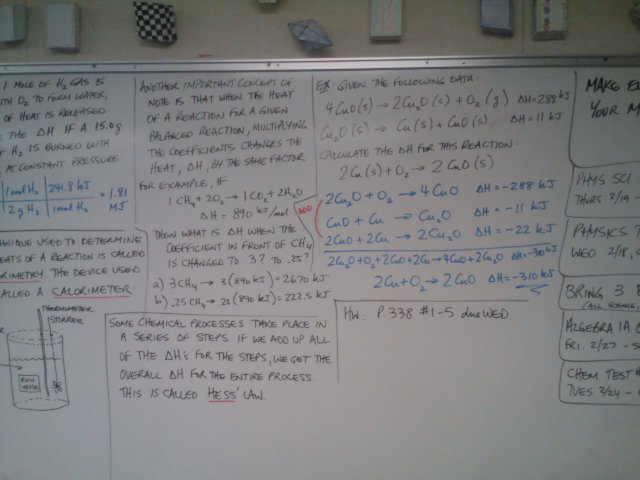 1 MOLE OF H2 GAS IS
WITH O2 TO FORM WATER,
OF HEAT IS RELEASED
THE ΔH IF A 15.0g
OF H2 IS BURNED WITH
AT CONSTANT PRESSURE.
1 mol H2 | 241.8 kJ
2 g H2 | 1 mol H2 = 1.81 MJ
TECHNIQUE USED TO DETERMINE
HEATS OF A REACTION IS CALLED
CALORIMETRY. THE DEVICE USED
CALLED A CALORIMETER.
THERMOMETER
STIRRER
RXN
ANOTHER IMPORTANT CONCEPT OF
NOTE IS THAT WHEN THE HEAT
OF A REACTION FOR A GIVEN
BALANCED REACTION, MULTIPLYING
THE COEFFICIENTS CHANGES THE
HEAT, ΔH, BY THE SAME FACTOR
FOR EXAMPLE, IF
1 CH4 + 2O2 → 1 CO2 + 2H2O
ΔH = 890 kJ/mol
THEN WHAT IS ΔH WHEN THE
COEFFICIENT IN FRONT OF CH4
IS CHANGED TO 3? TO .25?
a) 3CH4 → 3(890 kJ) = 2670 kJ
b) .25CH4 → .25(890 kJ) = 222.5 kJ
SOME CHEMICAL PROCESSES TAKE PLACE IN
A SERIES OF STEPS. IF WE ADD UP ALL
OF THE ΔH's FOR THE STEPS, WE GET THE
OVERALL ΔH FOR THE ENTIRE PROCESS.
THIS IS CALLED HESS' LAW.
EX: GIVEN THE FOLLOWING DATA:
4 CuO(s) → 2Cu2O(s) + O2(g) ΔH = 288 kJ
Cu2O(s) → Cu(s) + CuO(s) ΔH = 11 kJ
CALCULATE THE ΔH FOR THIS REACTION:
2Cu(s) + O2 → 2 CuO(s)
ADD
2Cu2O + O2 → 4 CuO ΔH = -288 kJ
CuO + Cu → Cu2O ΔH = -11 kJ
2CuO + 2Cu → 2Cu2O ΔH = -22 kJ
2Cu2O + O2 + 2CuO + 2Cu → 4CuO + 2Cu2O ΔH = -310 kJ
2Cu + O2 → 2CuO ΔH = -310 kJ
HW: P. 338 #1-5 due WED
MAKE
YOUR
PHYS SCI
THURS 2/19 -
PHYSICS
WED 2/18,
BRING 3
(ALL SCIENCE
ALGEBRA 1A
FRI. 2/27 -
CHEM TEST
TUES 3/24 -